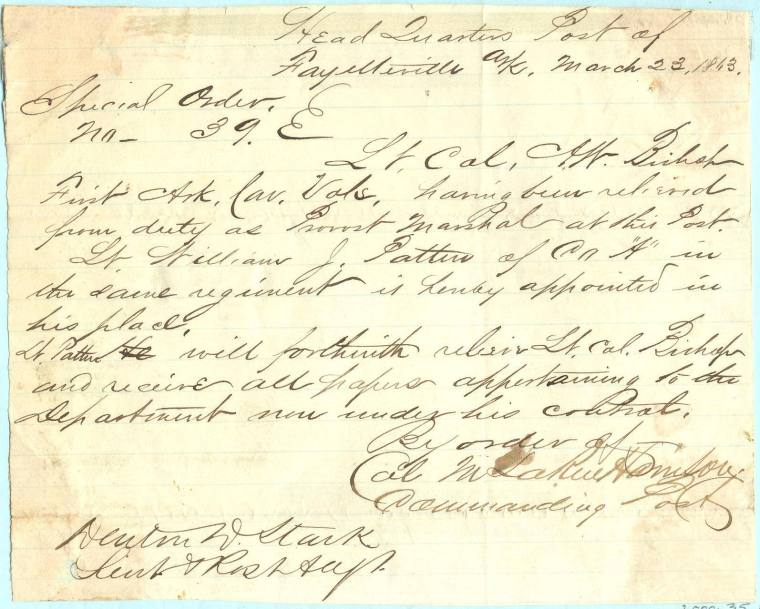 Head Quarters Post of
Fayetteville Ark. March 23, 1863.
Special Order.
No- 39. E
Lt. Col. A.W. Bishop
First Ark. Cav. Vols. having been relieved
from duty as Provost Marshal at this Post.
Lt. William J. Patten of Co "A" in
the same regiment is hereby appointed in
his place.
Lt Patten He will forthwith relieve Lt. Col. Bishop
and receive all papers appertaining to the
Department now under his control.
By order of
Col M LaRue Harrison
Commanding Post
Denton D. Stark
Lieut & Post Adjt.